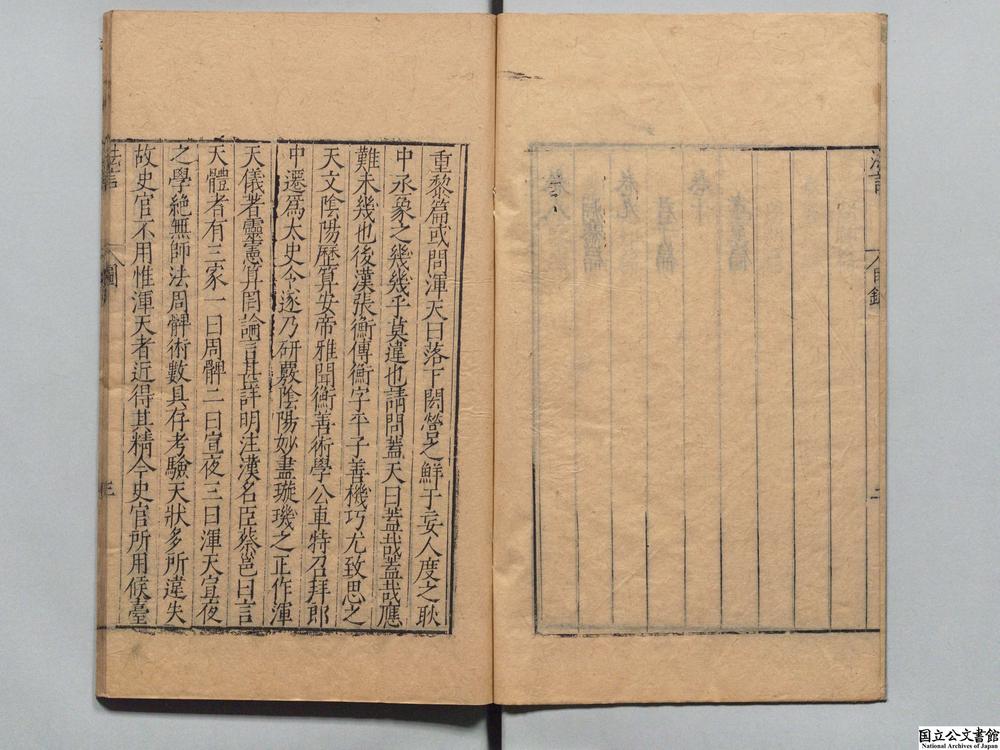 法言
目錄
二
重黎篇或問渾天曰落下閎營之鮮于妄人度之耿
中丞象之幾幾乎莫違也請問蓋天曰蓋哉蓋哉應
難未幾也後漢張衡傳衡字平子善機巧尤致思之
天文陰陽歷算安帝雅聞衡善術學公車特召拜郎
中遷爲太史令遂乃研覈陰陽妙盡璇璣之正作渾
天儀著靈憲算罔論言甚詳明注漢名臣蔡邕曰言
天體者有三家一曰周髀二曰宣夜三曰渾天宣夜
之學絕無師法周髀術數具存考驗天狀多所違失
故史官不用惟渾天者近得其精今史官所用候臺
法言
圖
三
国立公文書館
National Archives of Japan